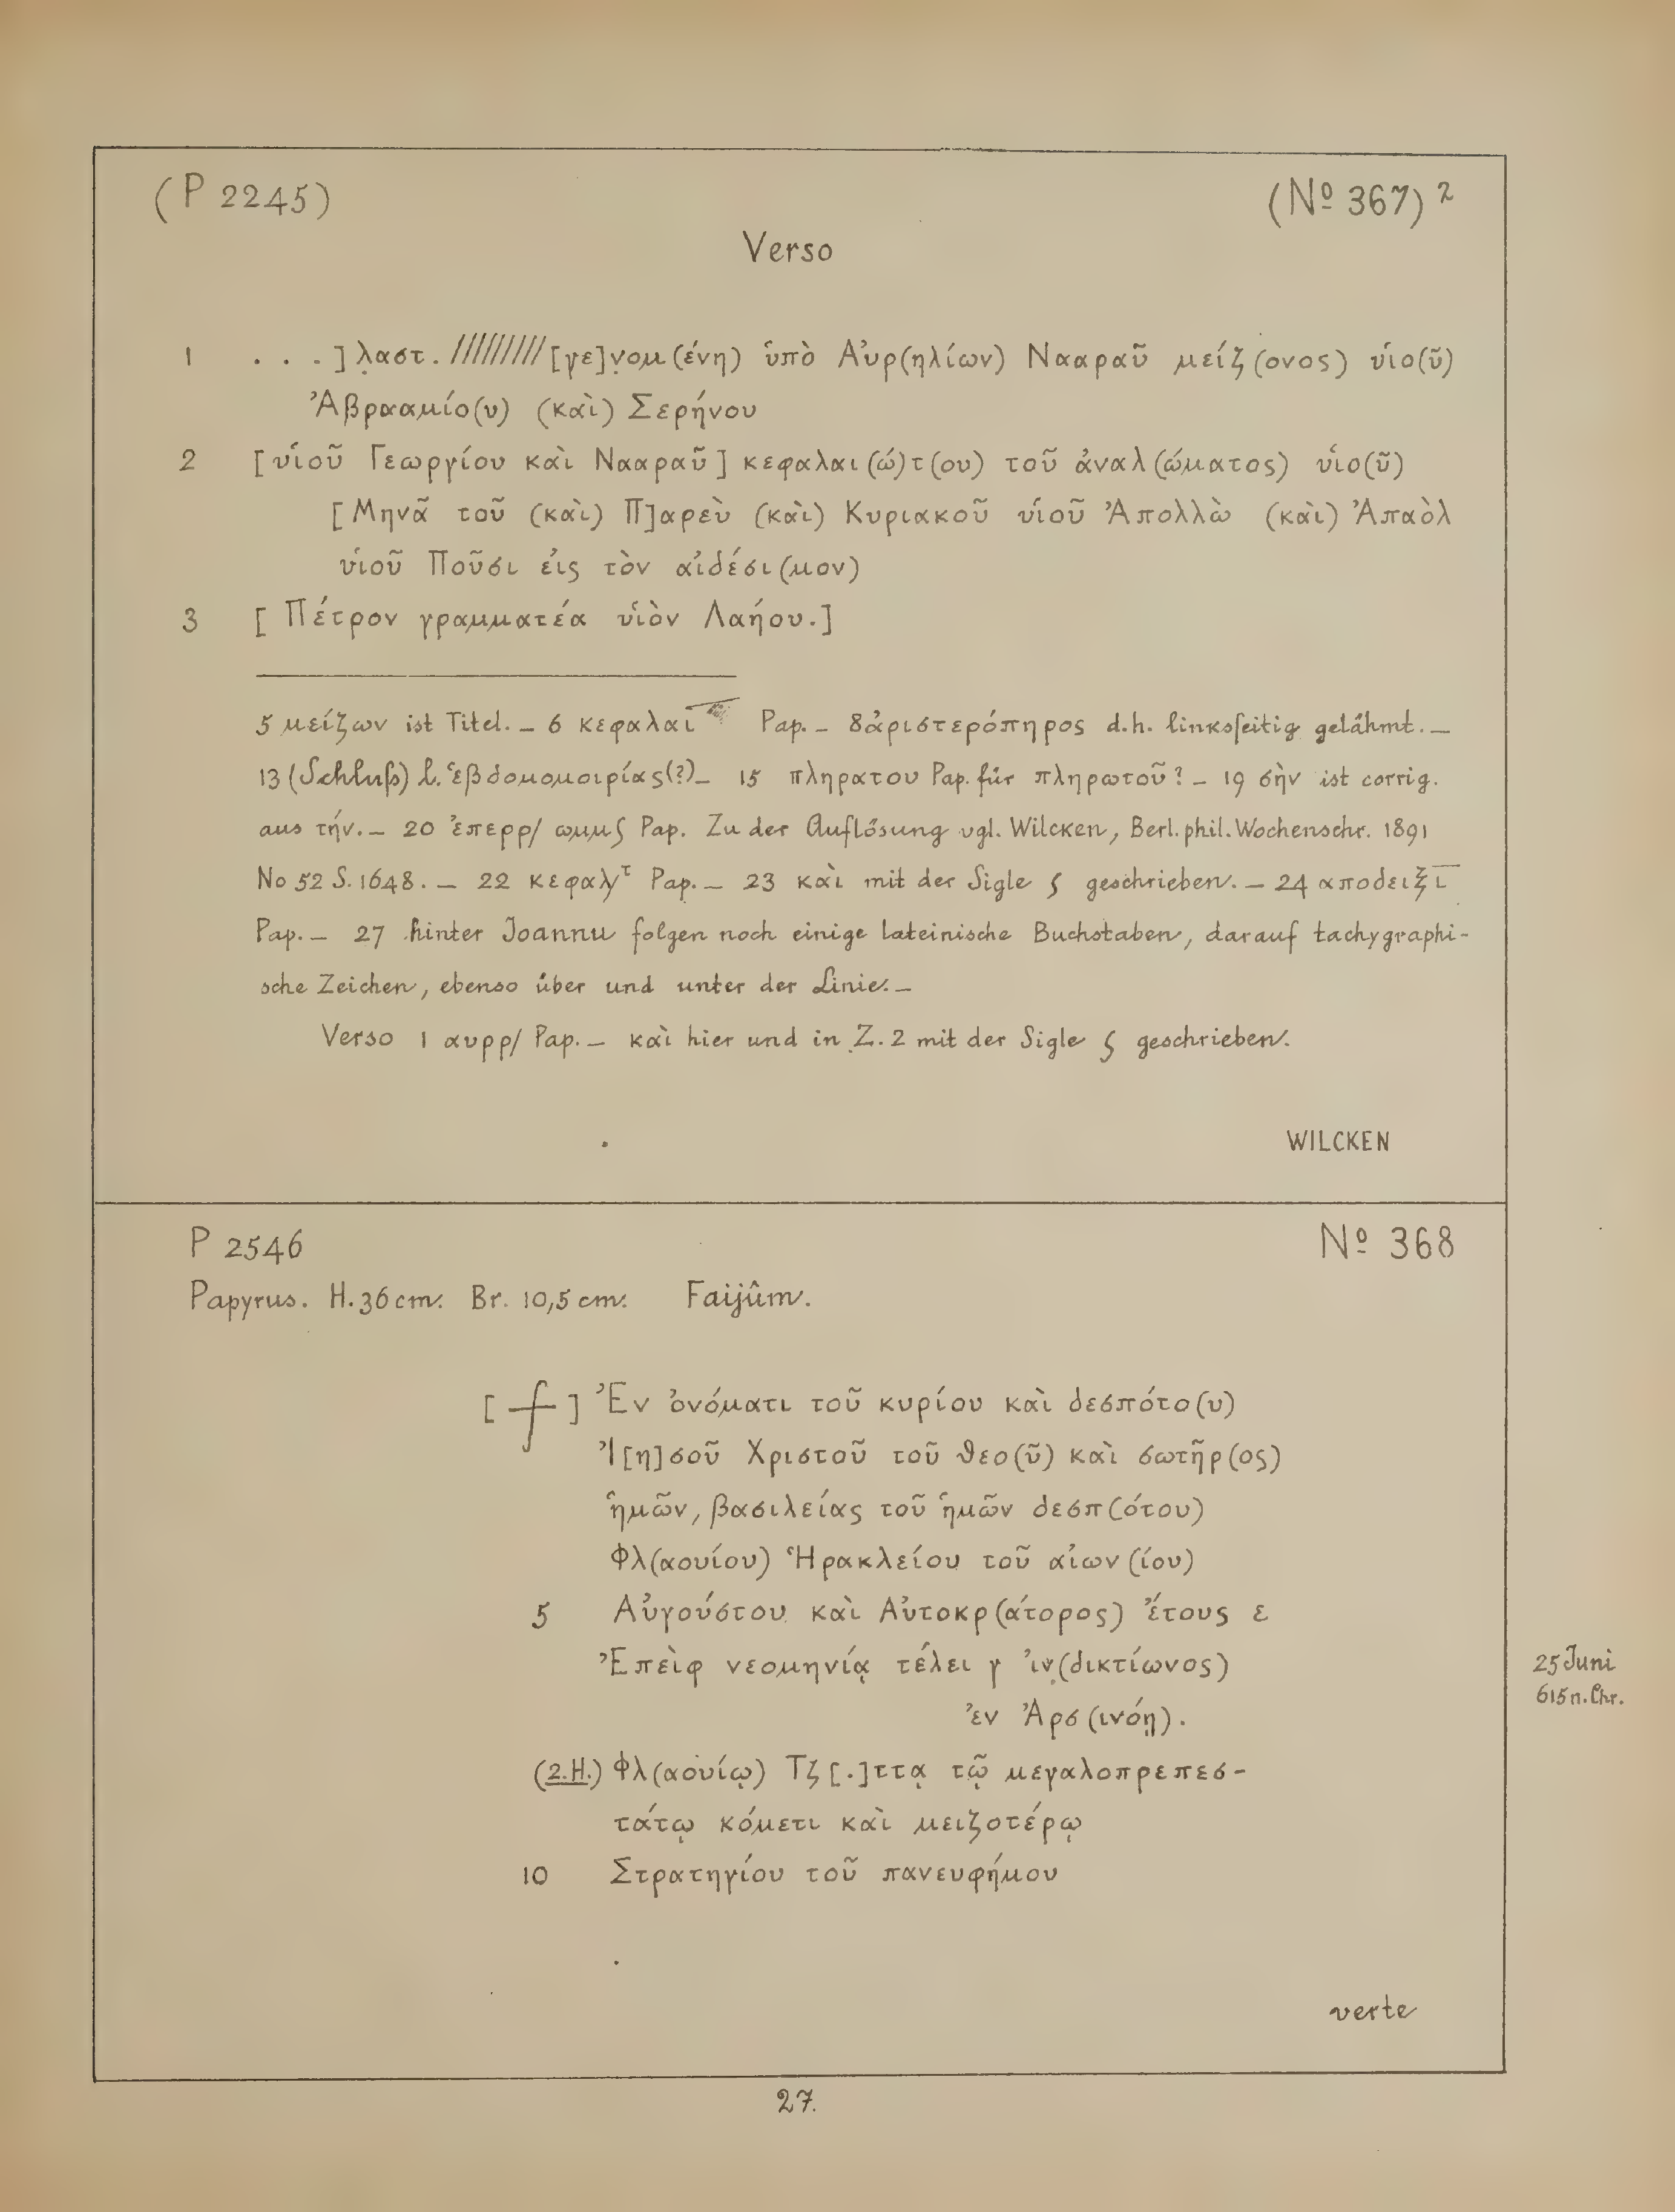 (P 2245) (Nº 367)²
Verso
1 . . . ] λ̣αστ. ///////// [γε]ν̣ομ(ένη) ὑπὸ Αὐρ(ηλίων) Νααραῦ μείζ(ονος) υἱο(ῦ)
Ἀβρααμίο(υ) (καὶ) Σερήνου
2 [υἱοῦ Γεωργίου καὶ Νααραῦ] κεφαλαι(ώ)τ(ου) τοῦ ἀναλ(ώματος) υἱο(ῦ)
[Μηνᾶ τοῦ (καὶ) Π]αρεὺ (καὶ) Κυριακοῦ υἱοῦ Ἀπολλὼ (καὶ) Ἀπαὸλ
υἱοῦ Ποῦσι εἰς τὸν αἰδέσι(μον)
3 [Πέτρον γραμματέα υἱὸν Λαήου.]
5 μείζων ist Titel. – 6 κεφαλαι Pap. – 8 ἀριστερόπηρος d.h. linksseitig gelähmt. –
13 (Schluß) l. ἑβδομομοιρίας(?) – 15 πληρατου Pap. für πληρωτοῦ? – 19 σὴν ist corrig.
aus τήν. – 20 ἐπερρ/ ωμμς Pap. Zu der Auflösung vgl. Wilcken, Berl. phil. Wochenschr. 1891
No 52 S. 1648. – 22 κεφαλγ^τ Pap. – 23 καὶ mit der Sigle ς geschrieben. – 24 αποδειξι
Pap. – 27 hinter Joannu folgen noch einige lateinische Buchstaben, darauf tachygraphi-
sche Zeichen, ebenso über und unter der Linie. –
Verso 1 αυρρ/ Pap. – καὶ hier und in Z. 2 mit der Sigle ς geschrieben.
WILCKEN
P 2546 Nº 368
Papyrus. H. 36 cm. Br. 10,5 cm. Faijûm.
[ ⳨ ] Ἐν ὀνόματι τοῦ κυρίου καὶ δεσπότο(υ)
Ἰ[η]σοῦ Χριστοῦ τοῦ θεο(ῦ) καὶ σωτῆρ(ος)
ἡμῶν, βασιλείας τοῦ ἡμῶν δεσπ(ότου)
Φλ(αουίου) Ἡρακλείου τοῦ αἰων(ίου)
5 Αὐγούστου καὶ Αὐτοκρ(άτορος) ἔτους ε
Ἐπεὶφ νεομηνίᾳ τέλει γ ἰν̣(δικτίωνος)
ἐν Ἀρσ(ινόῃ).
25 Juni
615 n. Chr.
(2.H.) Φλ(αουίῳ) Τζ[.]ττᾳ τῷ μεγαλοπρεπεσ-
τάτῳ κόμετι καὶ μειζοτέρῳ
10 Στρατηγίου τοῦ πανευφήμου
verte
27.